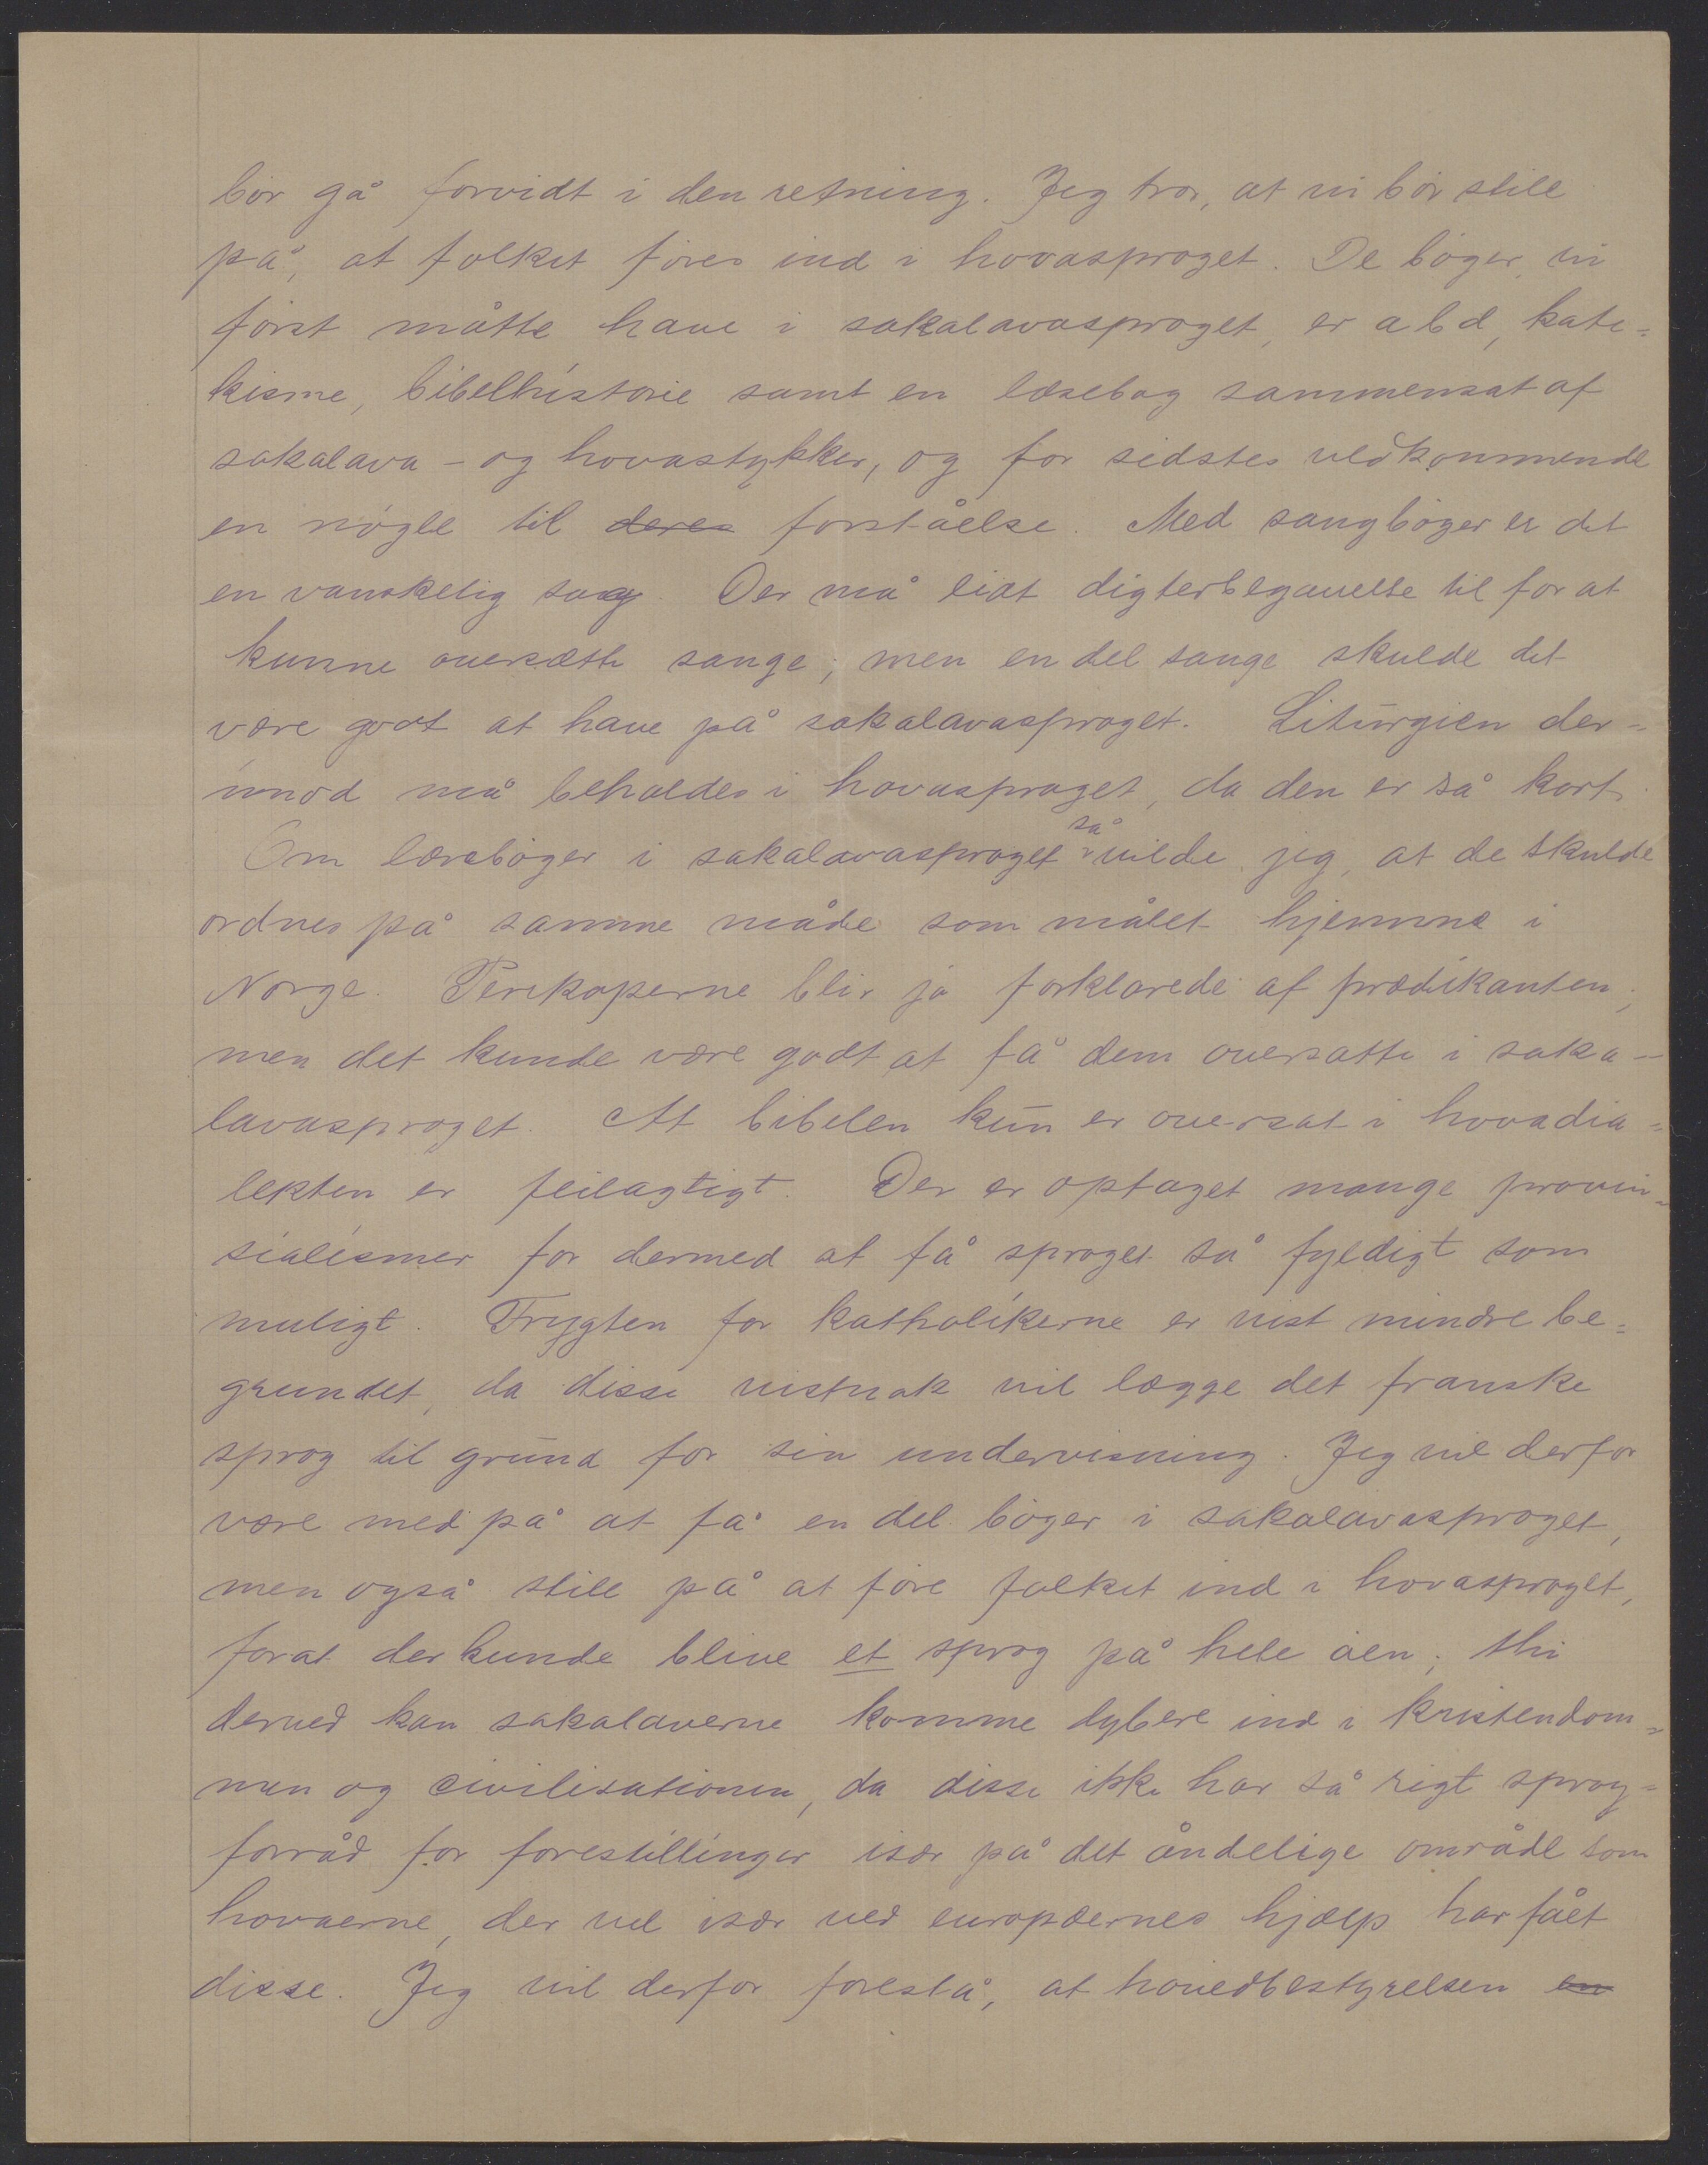 bör gå forvidt i den retning. Jeg tror, at vi bör stile
på, at folket föres ind i hovasproget. De böger, vi
först måtte have i sakalavasproget, er abd, kate=
kisme, bibelhistorie samt en læsebog sammensat af
sakalava- og hovastykker, og for sidstes vedkommende
en nögle til deres forståelse. Med sangböger er det
en vanskelig sag. Der må lidt digterbegavelse til for at
kunne oversætte sange; men en del sange skulde det
være godt at have på sakalavasproget. Liturgien der-
imod må beholdes i hovasproget, da den er så kort.
Om lærebøger i sakalavasproget så vilde jeg, at de skulde
ordnes på samme måde som målet hjemme i
Norge. Perikoperne blir jo forklarede af prædikanten;
men det kunde være godt at få dem oversatte i saka-
lavasproget. At bibelen kun er oversat i hovadia=
lekten er feilagtigt. Der er optaget mange provin=
sialismer for dermed at få sproget så fyldigt som
muligt. Frygten for katholikerne er vist mindre be=
grundet, da disse vistnok vil lægge det franske
sprog til grund for sin undervisning. Jeg vil derfor
være med på at få en del böger i sakalavasproget,
men også stile på at före folket ind i hovasproget,
forat der kunde blive et sprog på hele öen; thi
derved kan sakalaverne komme dybere ind i kristendom=
men og civilisationen, da disse ikke har så rigt sprog=
forråd for forestillinger især på det åndelige område som
hovaerne, der vel især ved europæernes hjælp har fået
disse. Jeg vil derfor foreslå, at hovedbestyrelsen en